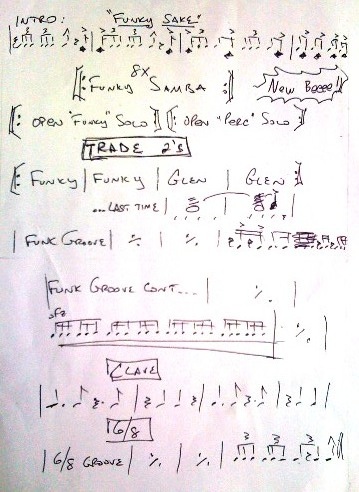 INTRO: "FUNKY SAKE"
3 3 3 3
8X
FUNKY SAMBA New Beeee!
OPEN "Funky" SOLO OPEN "PERC" SOLO
TRADE 2's
FUNKY | FUNKY | GLEN | GLEN
...LAST TIME
| FUNK GROOVE | ٪ | ٪ |
| FUNK GROOVE CONT... | ٪ |
sfz
٪
CLAVE
6/8
3 3 3
| 6/8 GROOVE | ٪ | ٪ |